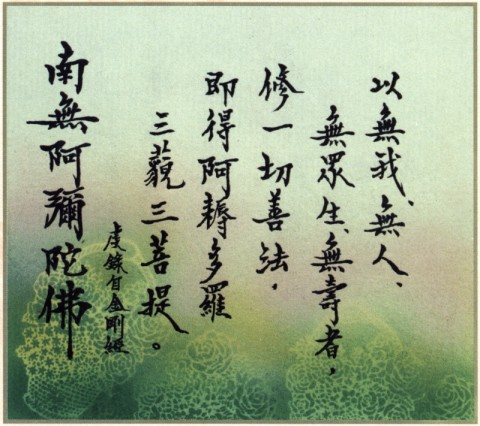 以無我、無人、
無眾生、無壽者，
修一切善法，
即得阿耨多羅
三藐三菩提。
虔錄自金剛經
南無阿彌陀佛